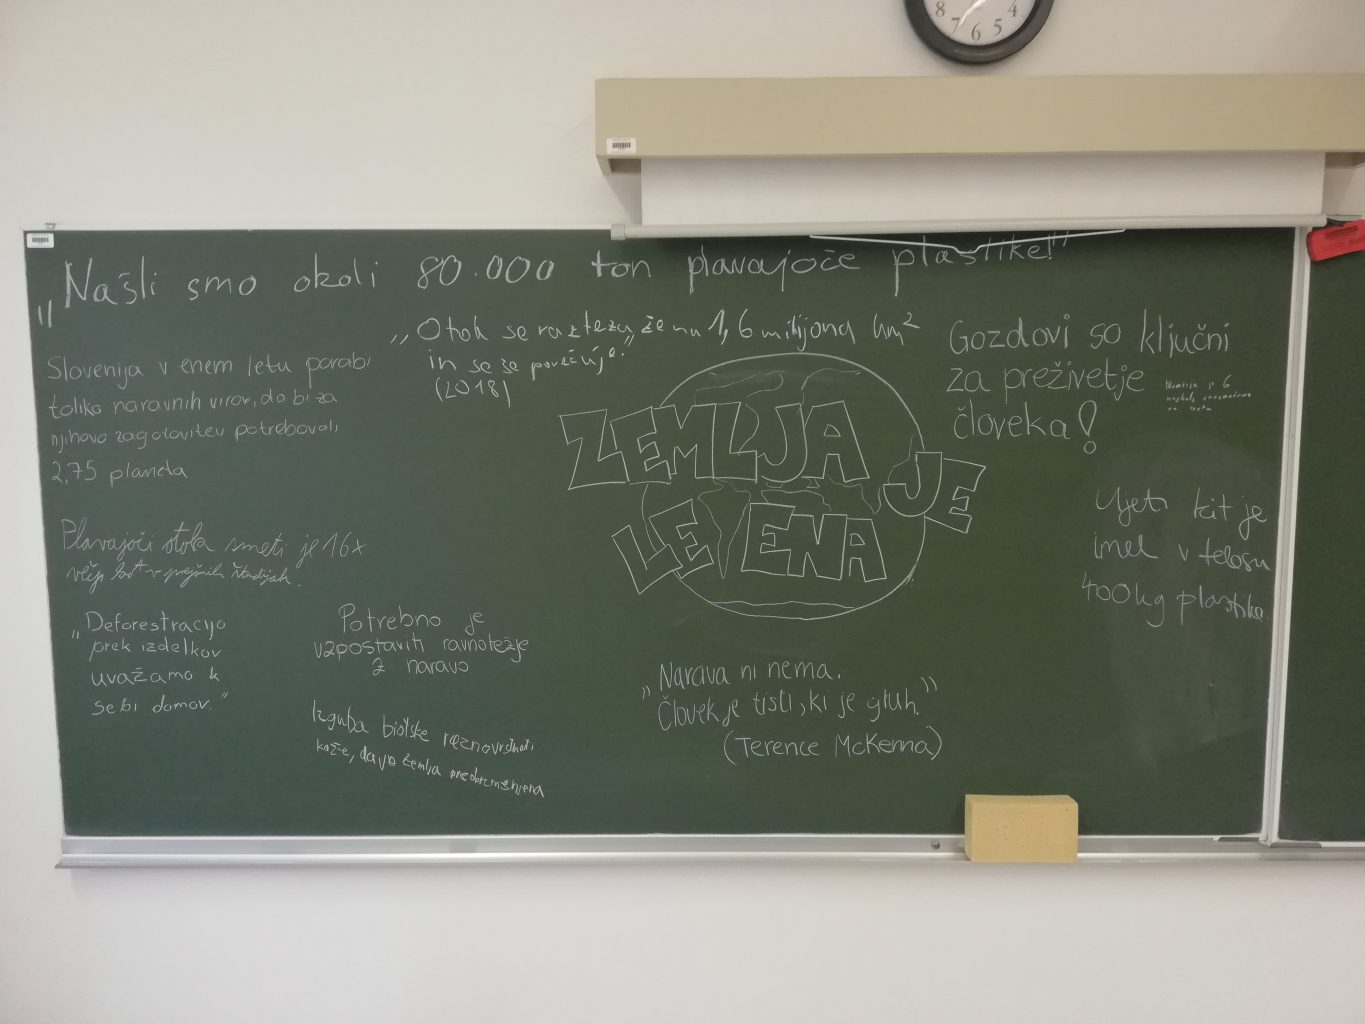 „Našli smo okoli 80.000 ton plavajoče plastike!"
„Otok se razteza že na 1,6 milijona km²
in se še povečuje."
(2018)
Slovenija v enem letu porabi
toliko naravnih virov, da bi za
njihovo zagotovitev potrebovali
2,75 planeta
Plavajoči otok smeti je 16x
večji kot v prejšnih študijah.
„Deforestracijo
prek izdelkov
uvažamo k
sebi domov."
Potrebno je
vzpostaviti ravnotežje
z naravo
Izguba biotske raznovrstnosti
kaže, da je zemlja preobremenjena
ZEMLJA JE
LE ENA
„Narava ni nema.
Človek je tisti, ki je gluh."
(Terence McKenna)
Gozdovi so ključni
za preživetje
človeka!
6
Ujeti kit je
imel v telesu
400kg plastike.
8 7 6 5 4